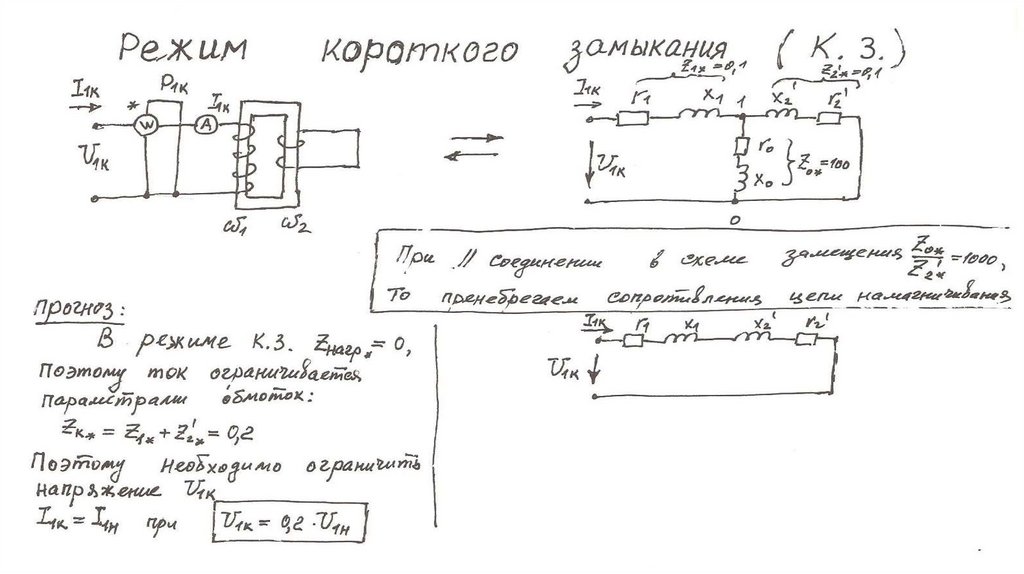 Режим короткого замыкания (К.З.)
Z1*=0,1
Z2'*=0,1
P1к
I1к
*
I1к
W
A
U1к
ω1 ω2
I1к
r1
x1
1
x2'
r2'
U1к
r0
x0
Z0*=100
0
При // соединении в схеме замещения Z0*/Z2'*=1000,
То пренебрегаем сопротивления цепи намагничивания
Прогноз:
В режиме К.З. Zнагр*=0,
Поэтому ток ограничивается
параметрами обмоток:
Zк* = Z1* + Z2'* = 0,2
Поэтому необходимо ограничить
напряжение U1к
I1к = I1н при U1к = 0,2·U1н
I1к
r1
x1
x2'
r2'
U1к